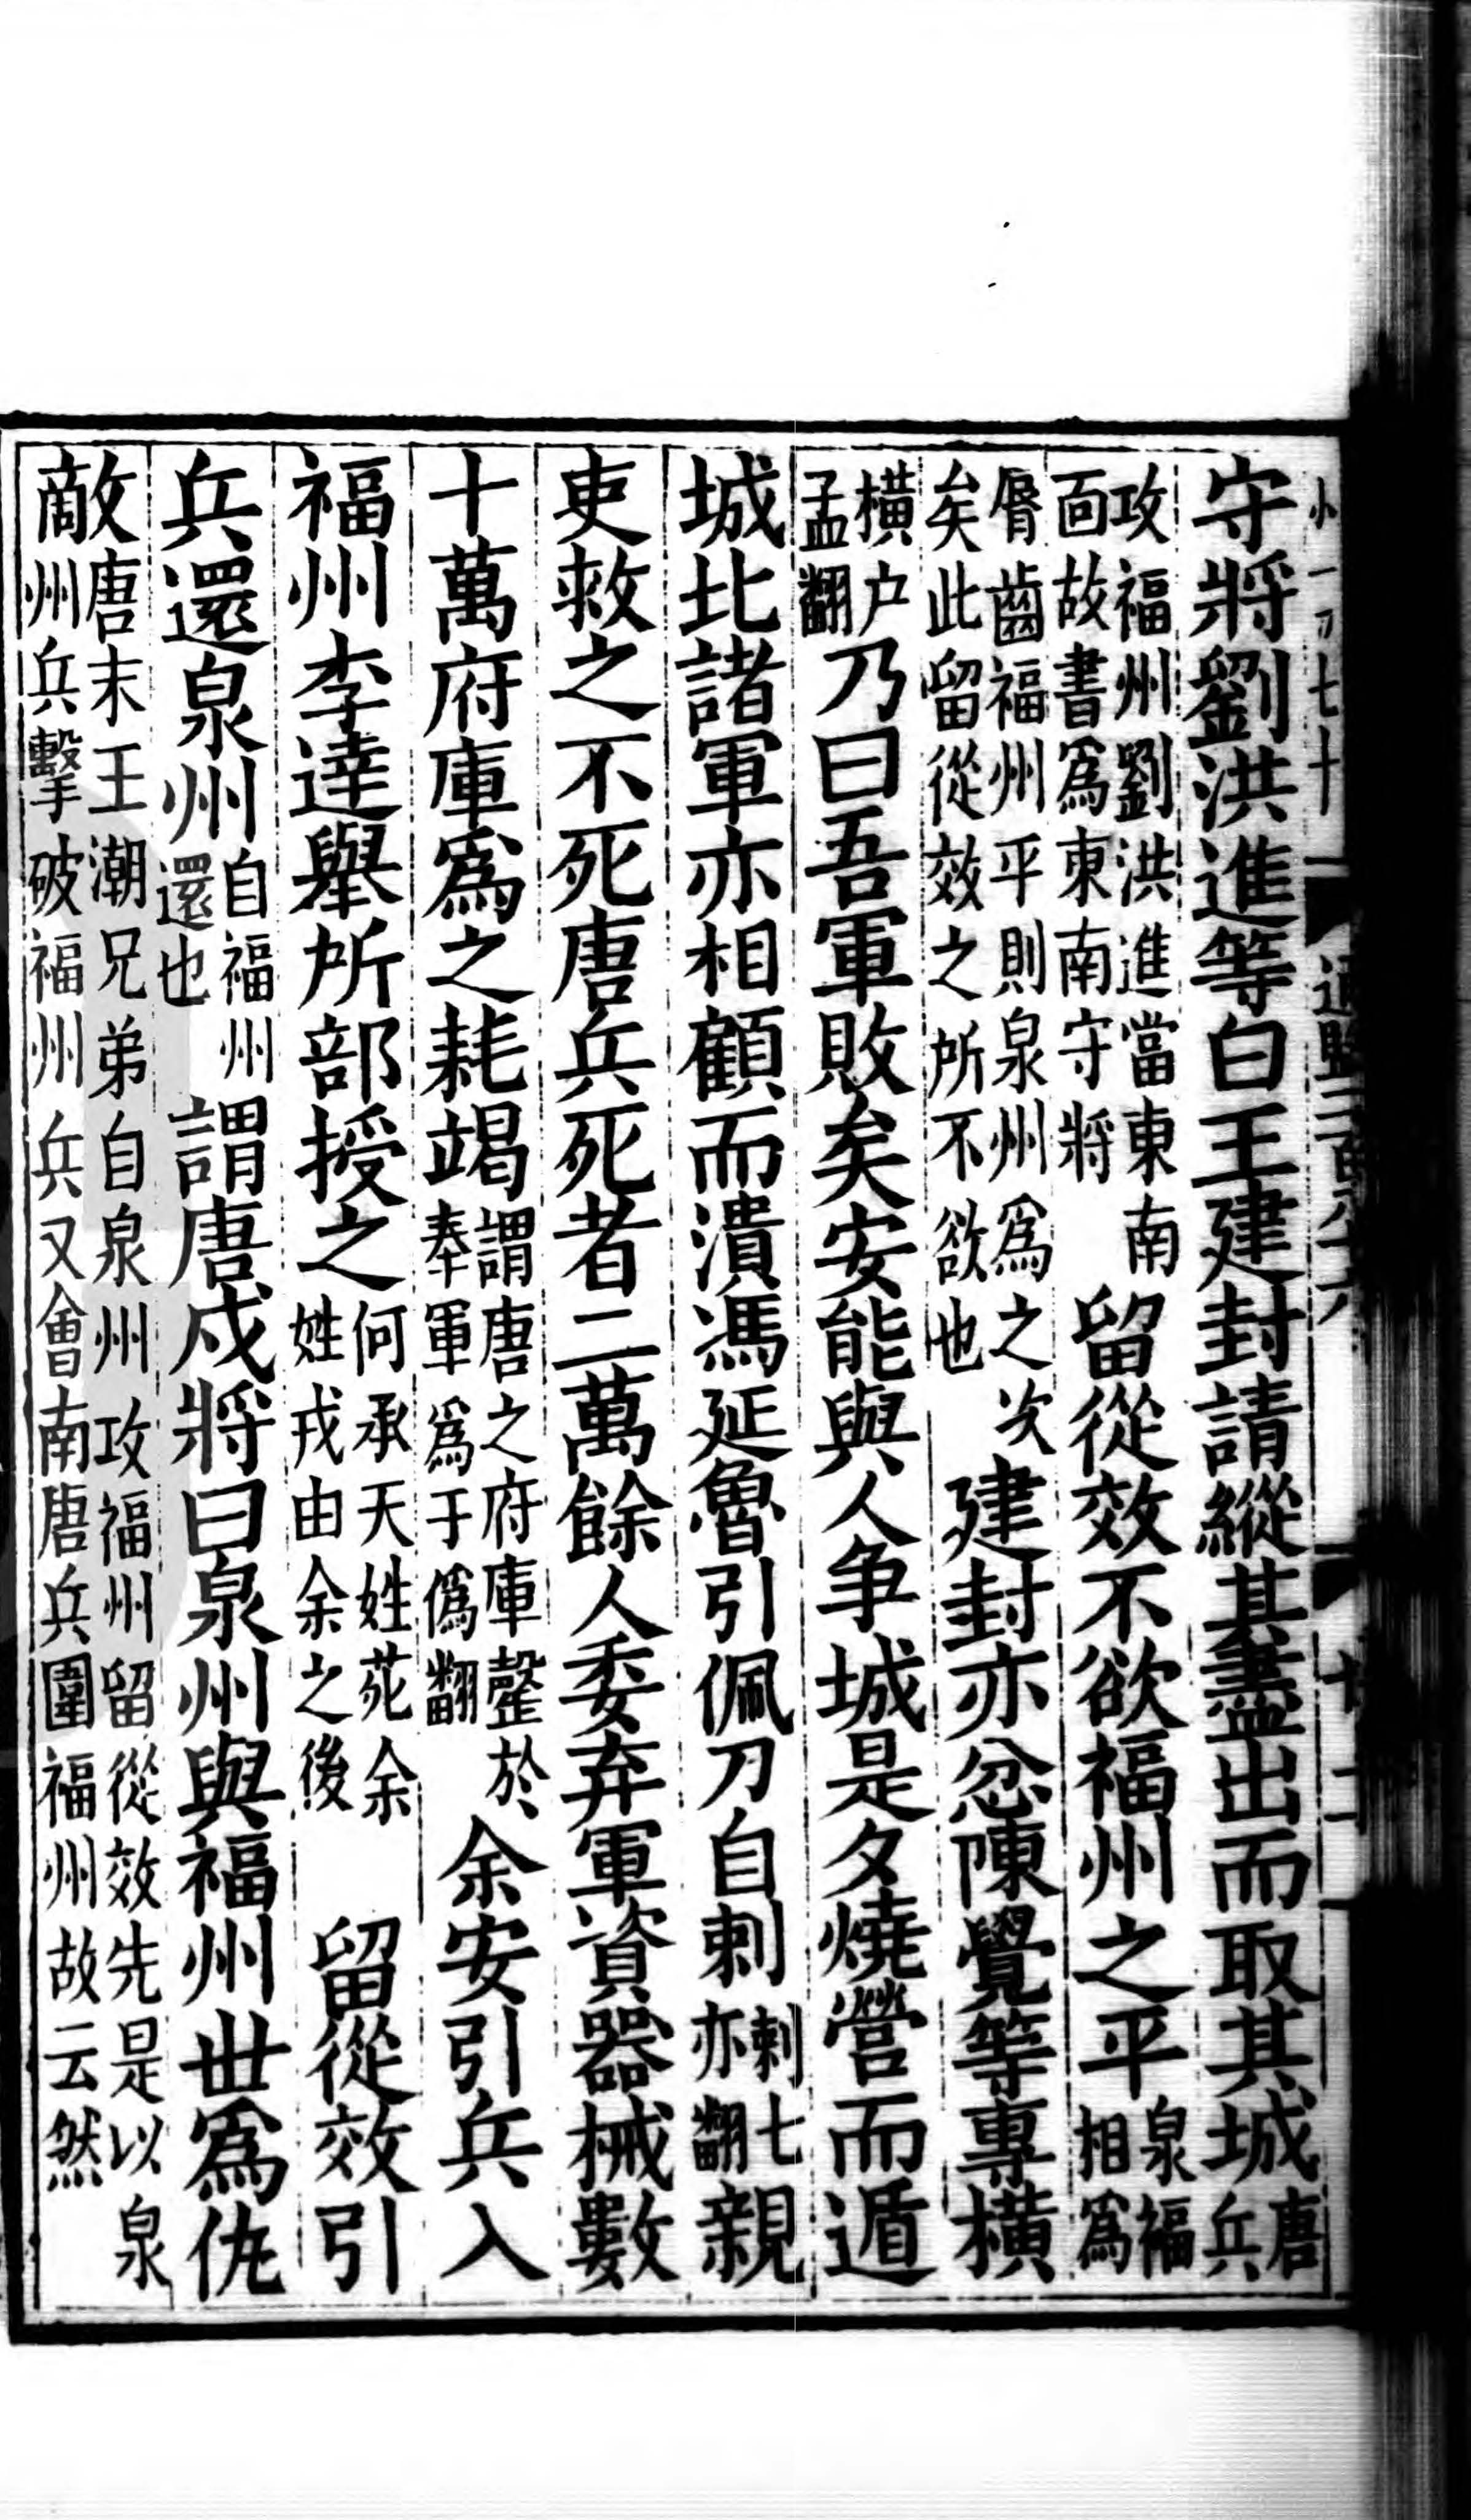 守將劉洪進等白王建封請縱其盡出而取其城唐兵
攻福州劉洪進當東南面故書爲東南守將留從效不欲福州之平泉福相爲
脣齒福州平則泉州爲之次矣此留從效之所不欲也建封亦忿陳覺等專橫
橫户孟翻乃曰吾軍敗矣安能與人爭城是夕燒營而遁
城北諸軍亦相顧而潰馮延魯引佩刀自刺刺七亦翻親
吏救之不死唐兵死者二萬餘人委弃軍資器械數
十萬府庫爲之耗竭謂唐之府庫罄於奉軍爲于僞翻余安引兵入
福州李達舉所部授之何承天姓苑余姓戎由余之後留從效引
兵還泉州自福州還也謂唐戍將曰泉州與福州世爲仇
敵唐末王潮兄弟自泉州攻福州留從效先是以泉州兵擊破福州兵又會南唐兵圍福州故云然